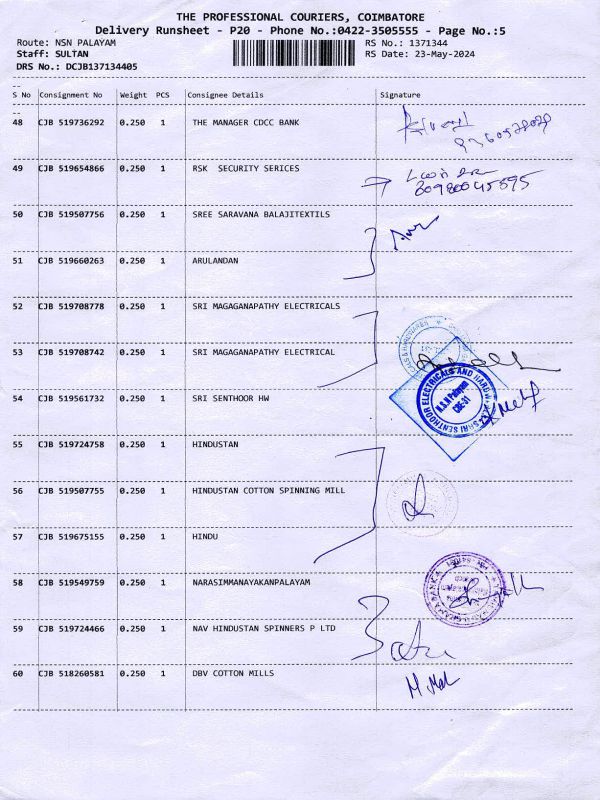 THE PROFESSIONAL COURIERS, COIMBATORE
Delivery Runsheet - P20 - Phone No.:0422-3505555 - Page No.:5
Route: NSN PALAYAM RS No.: 1371344
Staff: SULTAN RS Date: 23-May-2024
DRS No.: DCJB137134405
S No Consignment No Weight PCS Consignee Details Signature
48 CJB 519736292 0.250 1 THE MANAGER CDCC BANK
49 CJB 519654866 0.250 1 RSK SECURITY SERICES
50 CJB 519507756 0.250 1 SREE SARAVANA BALAJITEXTILS
51 CJB 519660263 0.250 1 ARULANDAN
52 CJB 519708778 0.250 1 SRI MAGAGANAPATHY ELECTRICALS
53 CJB 519708742 0.250 1 SRI MAGAGANAPATHY ELECTRICAL
54 CJB 519561732 0.250 1 SRI SENTHOOR HW
SRI SENTHOOR ELECTRICALS AND HARDW
N.S.N Palayam
CBE-31
55 CJB 519724758 0.250 1 HINDUSTAN
56 CJB 519507755 0.250 1 HINDUSTAN COTTON SPINNING MILL
57 CJB 519675155 0.250 1 HINDU
58 CJB 519549759 0.250 1 NARASIMMANAYAKANPALAYAM
59 CJB 519724466 0.250 1 NAV HINDUSTAN SPINNERS P LTD
60 CJB 518260581 0.250 1 DBV COTTON MILLS